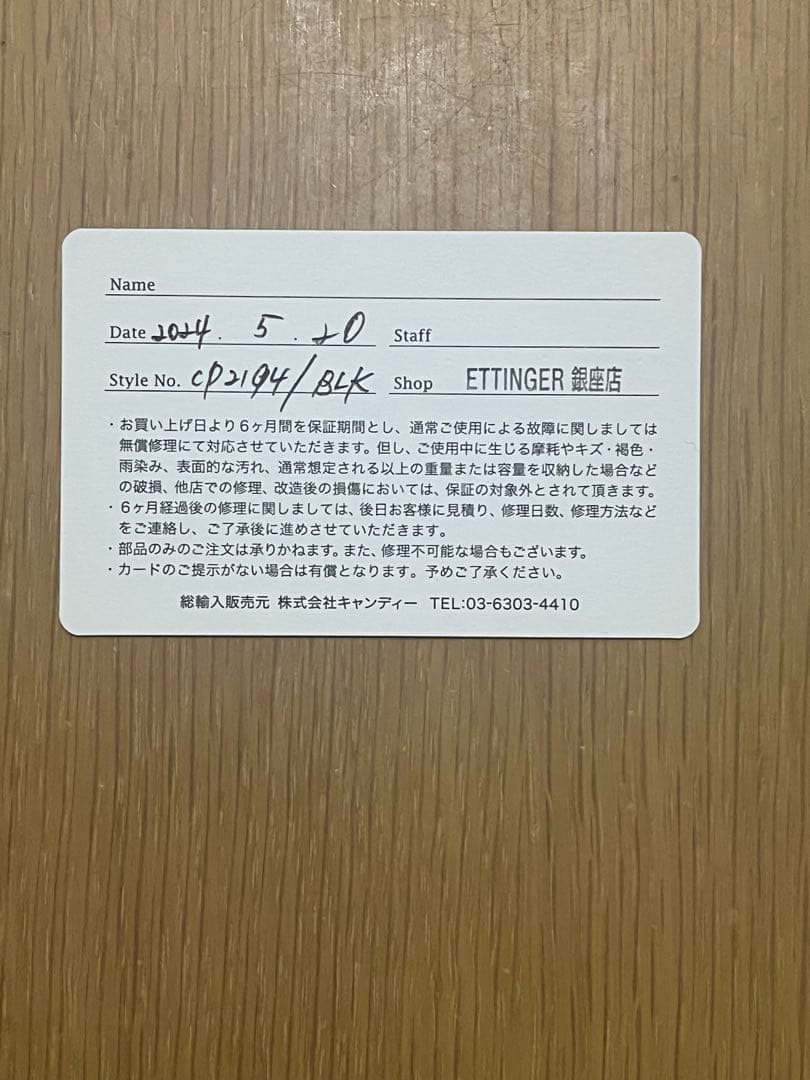 Name
Date 2024. 5. 20 Staff
Style No. CP2194/BLK Shop ETTINGER 銀座店
・お買い上げ日より6ヶ月間を保証期間とし、通常ご使用による故障に関しましては
無償修理にて対応させていただきます。但し、ご使用中に生じる摩耗やキズ・褐色・
雨染み、表面的な汚れ、通常想定される以上の重量または容量を収納した場合など
の破損、他店での修理、改造後の損傷においては、保証の対象外とされて頂きます。
・6ヶ月経過後の修理に関しましては、後日お客様に見積り、修理日数、修理方法など
をご連絡し、ご了承後に進めさせていただきます。
・部品のみのご注文は承りかねます。また、修理不可能な場合もございます。
・カードのご提示がない場合は有償となります。予めご了承ください。
総輸入販売元 株式会社キャンディー TEL:03-6303-4410